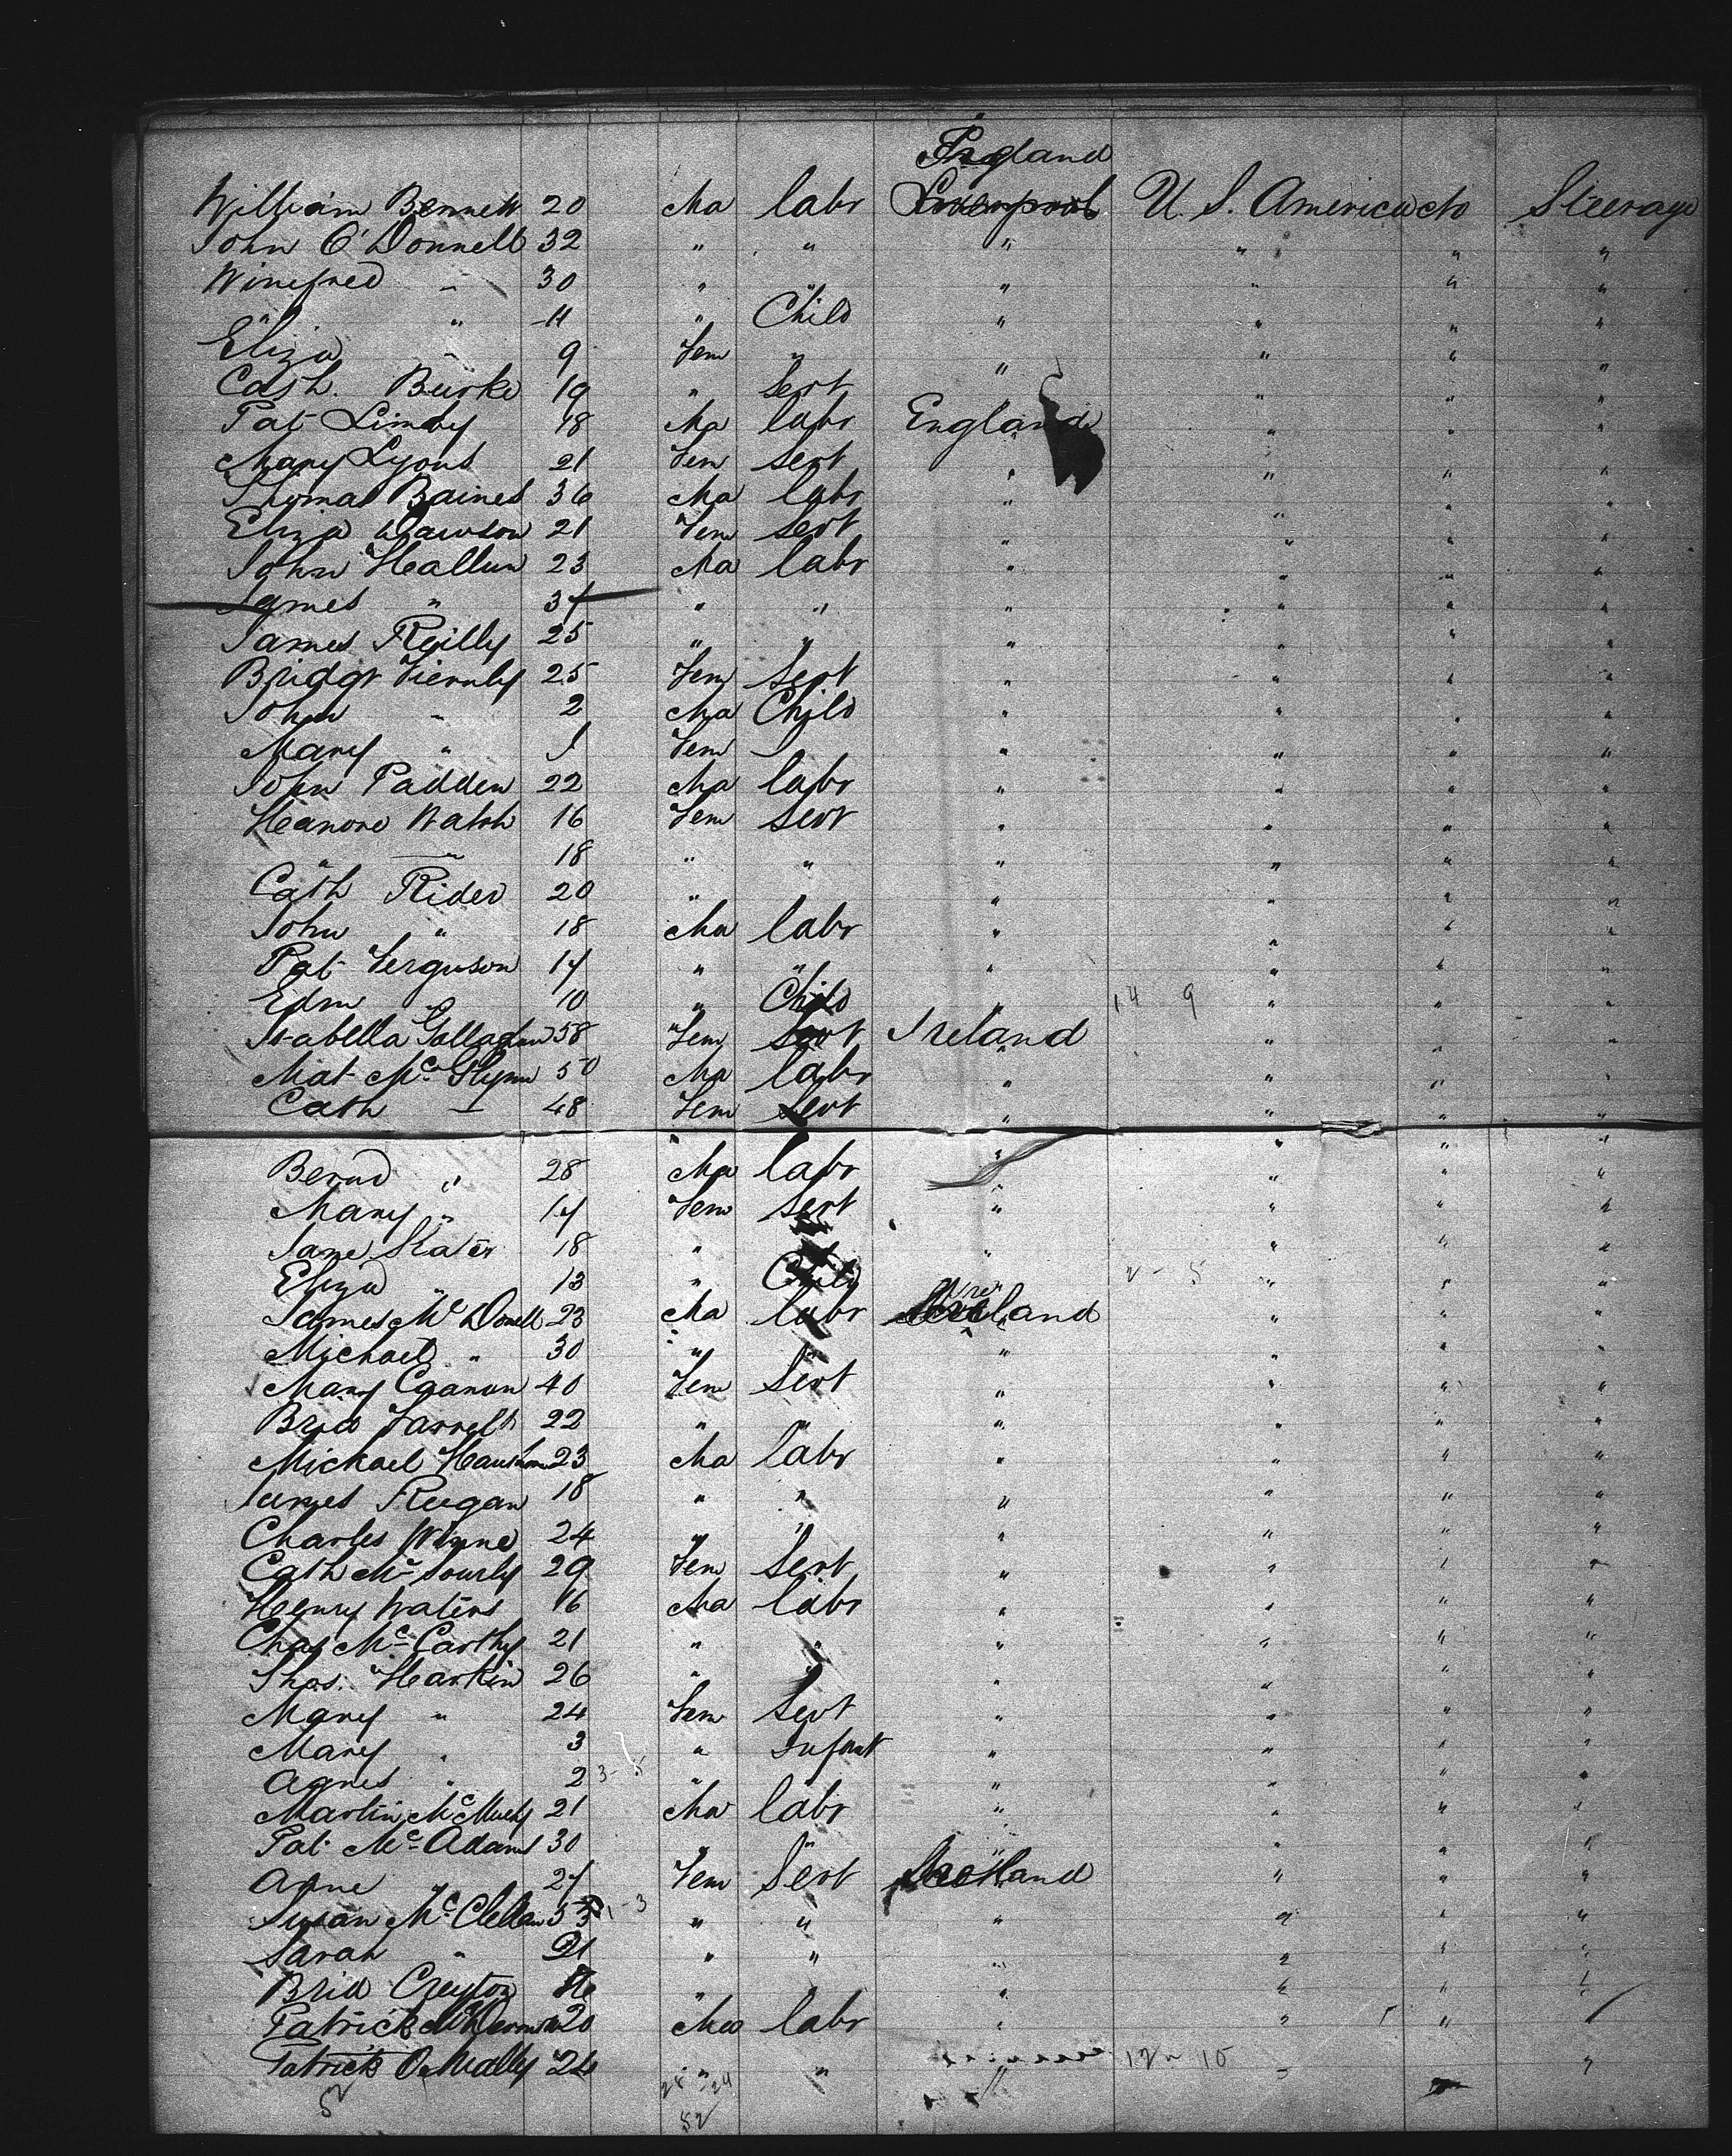 England
William Bennett 20 Ma labr Liverpool U. S. America do Steerage
John O'Donnell 32 " " " " " "
Winefred " 30 " " " " " "
" " 11 " Child " " " "
Eliza " 9 Fem " " " " "
Cath. Burke 19 " Servt " " "
Pat 18 Ma labr England " " "
Mary Lyons 21 Fem Servt " " " "
Thomas Baines 36 Ma labr " " " "
Eliza Dawson 21 Fem Servt " " " "
John Hallun 23 Ma labr " " " "
James " " " " " " "
James Reilly 25 " " " " " "
Bridgt 25 Fem Servt " " " "
John " 2 Ma Child " " " "
Mary " 1 Fem " " " "
John Padden 22 Ma labr " " " "
Walsh 16 Fem Servt " " " "
" " 18 " " " " " "
Cath Rider 20 " " " " "
John " 18 Ma labr " " " "
Pat Ferguson 14 " " " " " "
Edm " 10 " Child 14 9 " " "
Isabella 58 Fem Servt Ireland " " "
Mat McGlynn 50 Ma labr " " " "
Cath " 48 Fem Servt " " " "
Bernd " 28 Ma labr " " " "
Mary " 14 Fem Servt " " " "
Jane Slater 18 " " " " "
Eliza " 13 " Child 2 - 5 " " "
James McDonell 23 Ma labr Ireland " " "
Michael " 30 " " " " "
Mary Cannon 40 Fem Servt " " " "
Brid Farrell 22 " " " " " "
Michael 23 Ma labr " " " "
James Reegan 18 " " " " " "
Charles Wynne 24 " " " " " "
Cath 29 Fem Servt " " " "
Henry Waters 16 Ma labr " " " "
Chas McCarthy 21 " " " " " "
Thos. Harkin 26 " " " " " "
Mary " 24 Fem Servt " " " "
Mary " 3 " Infant " " " "
Agnes " 2 3 - 5 " " " " "
Martin 21 Ma labr " " " "
Pat McAdams 30 " " " " " "
Anne " Fem Servt Scotland " " "
Susan McClellan 1 - 3 " " " " " "
Sarah " 21 " " " " " "
Brid Creyton " " " " "
Patrick 20 Ma labr " " "
Patrick O'Mally 24 " " 12 " 10 " "
52 28 24
52